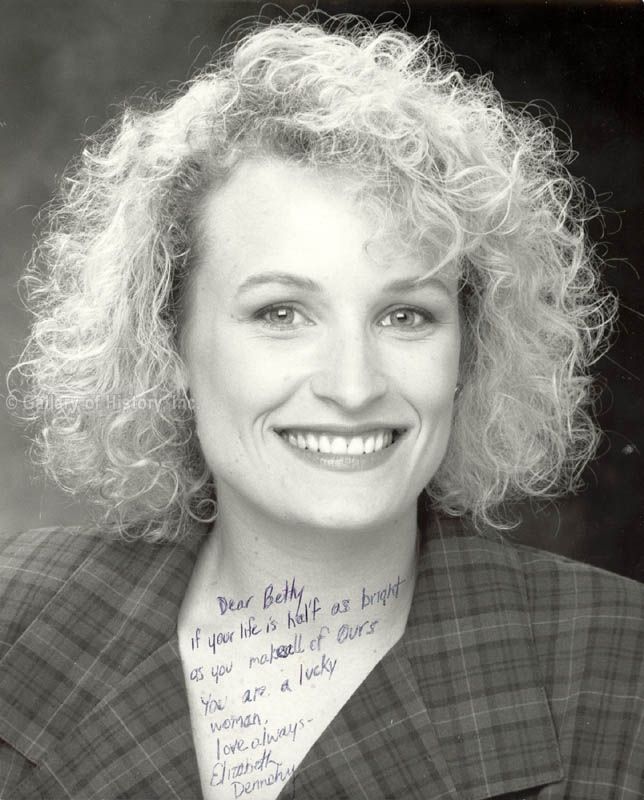 © Gallery of History, Inc.
Dear Betty
if your life is half as bright
as you make all of Ours
You are a lucky
woman.
love always-
Elizabeth
Dennehy